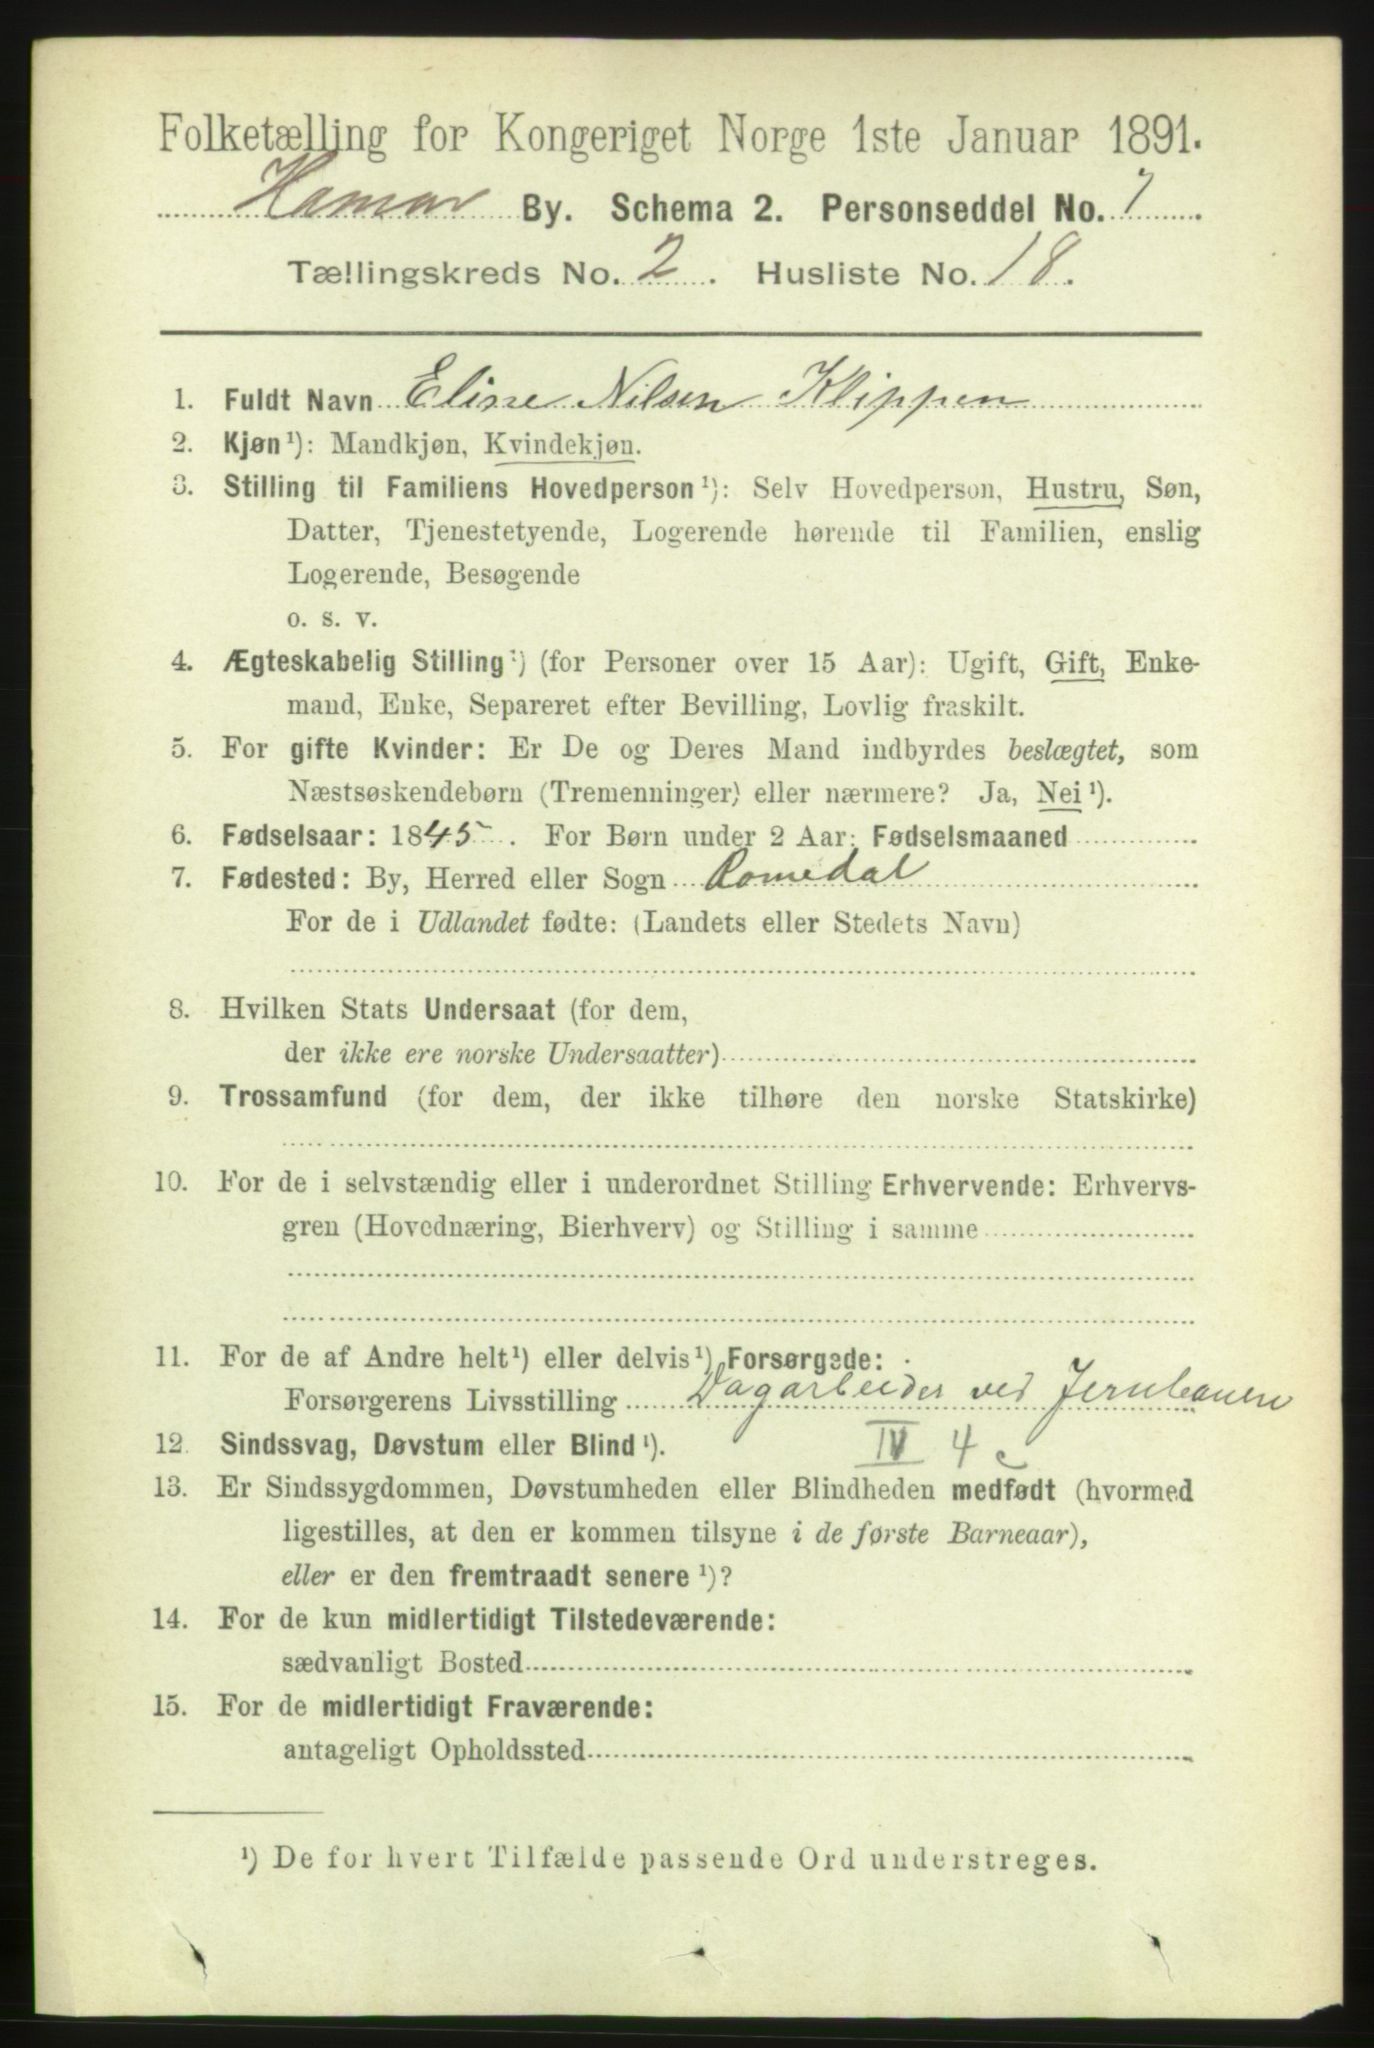 Folketælling for Kongeriget Norge 1ste Januar 1891.
Hamar By. Schema 2. Personseddel No. 7
Tællingskreds No. 2. Husliste No. 18.
1. Fuldt Navn Elise Nilsen Klippen
2. Kjøn¹): Mandkjøn, Kvindekjøn.
3. Stilling til Familiens Hovedperson¹): Selv Hovedperson, Hustru, Søn,
Datter, Tjenestetyende, Logerende hørende til Familien, enslig
Logerende, Besøgende
o. s. v.
4. Ægteskabelig Stilling¹) (for Personer over 15 Aar): Ugift, Gift, Enke-
mand, Enke, Separeret efter Bevilling, Lovlig fraskilt.
5. For gifte Kvinder: Er De og Deres Mand indbyrdes beslægtet, som
Næstsøskendebørn (Tremenninger) eller nærmere? Ja, Nei¹).
6. Fødselsaar: 1845. For Børn under 2 Aar: Fødselsmaaned
7. Fødested: By, Herred eller Sogn Romedal
For de i Udlandet fødte: (Landets eller Stedets Navn)
8. Hvilken Stats Undersaat (for dem,
der ikke ere norske Undersaatter)
9. Trossamfund (for dem, der ikke tilhøre den norske Statskirke)
10. For de i selvstændig eller i underordnet Stilling Erhvervende: Erhvervs-
gren (Hovednæring, Bierhverv) og Stilling i samme
11. For de af Andre helt¹) eller delvis¹) Forsørgede:
Forsørgerens Livsstilling Dagarbeider ved Jernbanen
12. Sindssvag, Døvstum eller Blind¹). IV 4 c
13. Er Sindssygdommen, Døvstumheden eller Blindheden medfødt (hvormed
ligestilles, at den er kommen tilsyne i de første Barneaar),
eller er den fremtraadt senere¹)?
14. For de kun midlertidigt Tilstedeværende:
sædvanligt Bosted
15. For de midlertidigt Fraværende:
antageligt Opholdssted
¹) De for hvert Tilfælde passende Ord understreges.